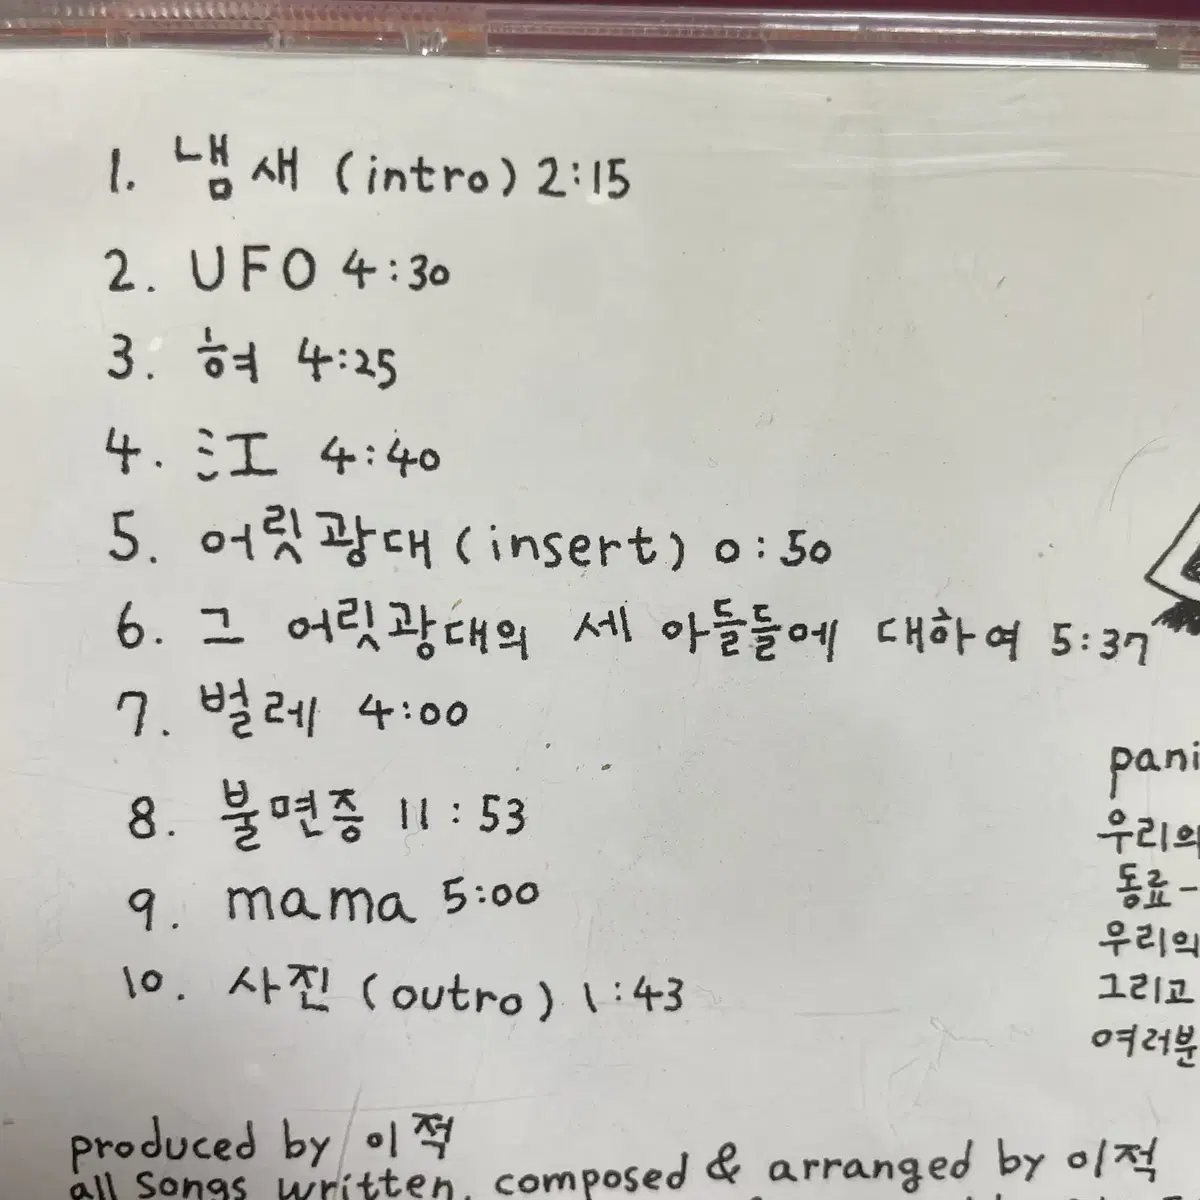 1. 냄새 (intro) 2:15
2. UFO 4:30
3. 혀 4:25
4. 江 4:40
5. 어릿광대 (insert) 0:50
6. 그 어릿광대의 세 아들들에 대하여 5:37
7. 벌레 4:00
8. 불면증 11:53
9. mama 5:00
10. 사진 (outro) 1:43
pani
우리의
동료-
우리의
그리고
여러분
produced by 이적
all songs written, composed & arranged by 이적